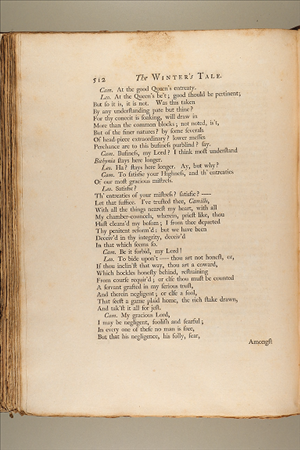 512 The WINTER's TALE.
Cam. At the good Queen's entreaty.
Leo. At the Queen's be't; good should be pertinent;
But so it is, it is not. Was this taken
By any understanding pate but thine?
For thy conceit is soaking, will draw in
More than the common blocks; not noted, is't,
But of the finer natures? by some severals
Of head-piece extraordinary? lower messes
Perchance are to this business purblind? say.
Cam. Business, my Lord? I think most understand
Bohemia stays here longer.
Leo. Ha? stays here longer. Ay, but why?
Cam. To satisfie your Highness, and th' entreaties
Of our most gracious mistress.
Leo. Satisfie?
Th' entreaties of your mistress? satisfie? —
Let that suffice. I've trusted thee, Camillo,
With all the things nearest my heart, with all
My chamber-councels, wherein, priest like, thou
Hast cleans'd my bosom; I from thee departed
Thy penitent reform'd: but we have been
Deceiv'd in thy integrity, deceiv'd
In that which seems so.
Cam. Be it forbid, my Lord!
Leo. To bide upon't — thou art not honest, or,
If thou inclin'st that way, thou art a coward,
Which hockles honesty behind, restraining
From course requir'd; or else thou must be counted
A servant grafted in my serious trust,
And therein negligent; or else a fool,
That seest a game plaid home, the rich stake drawn,
And tak'st it all for jest.
Cam. My gracious Lord,
I may be negligent, foolish and fearful;
In every one of these no man is free,
But that his negligence, his folly, fear,
Amongst